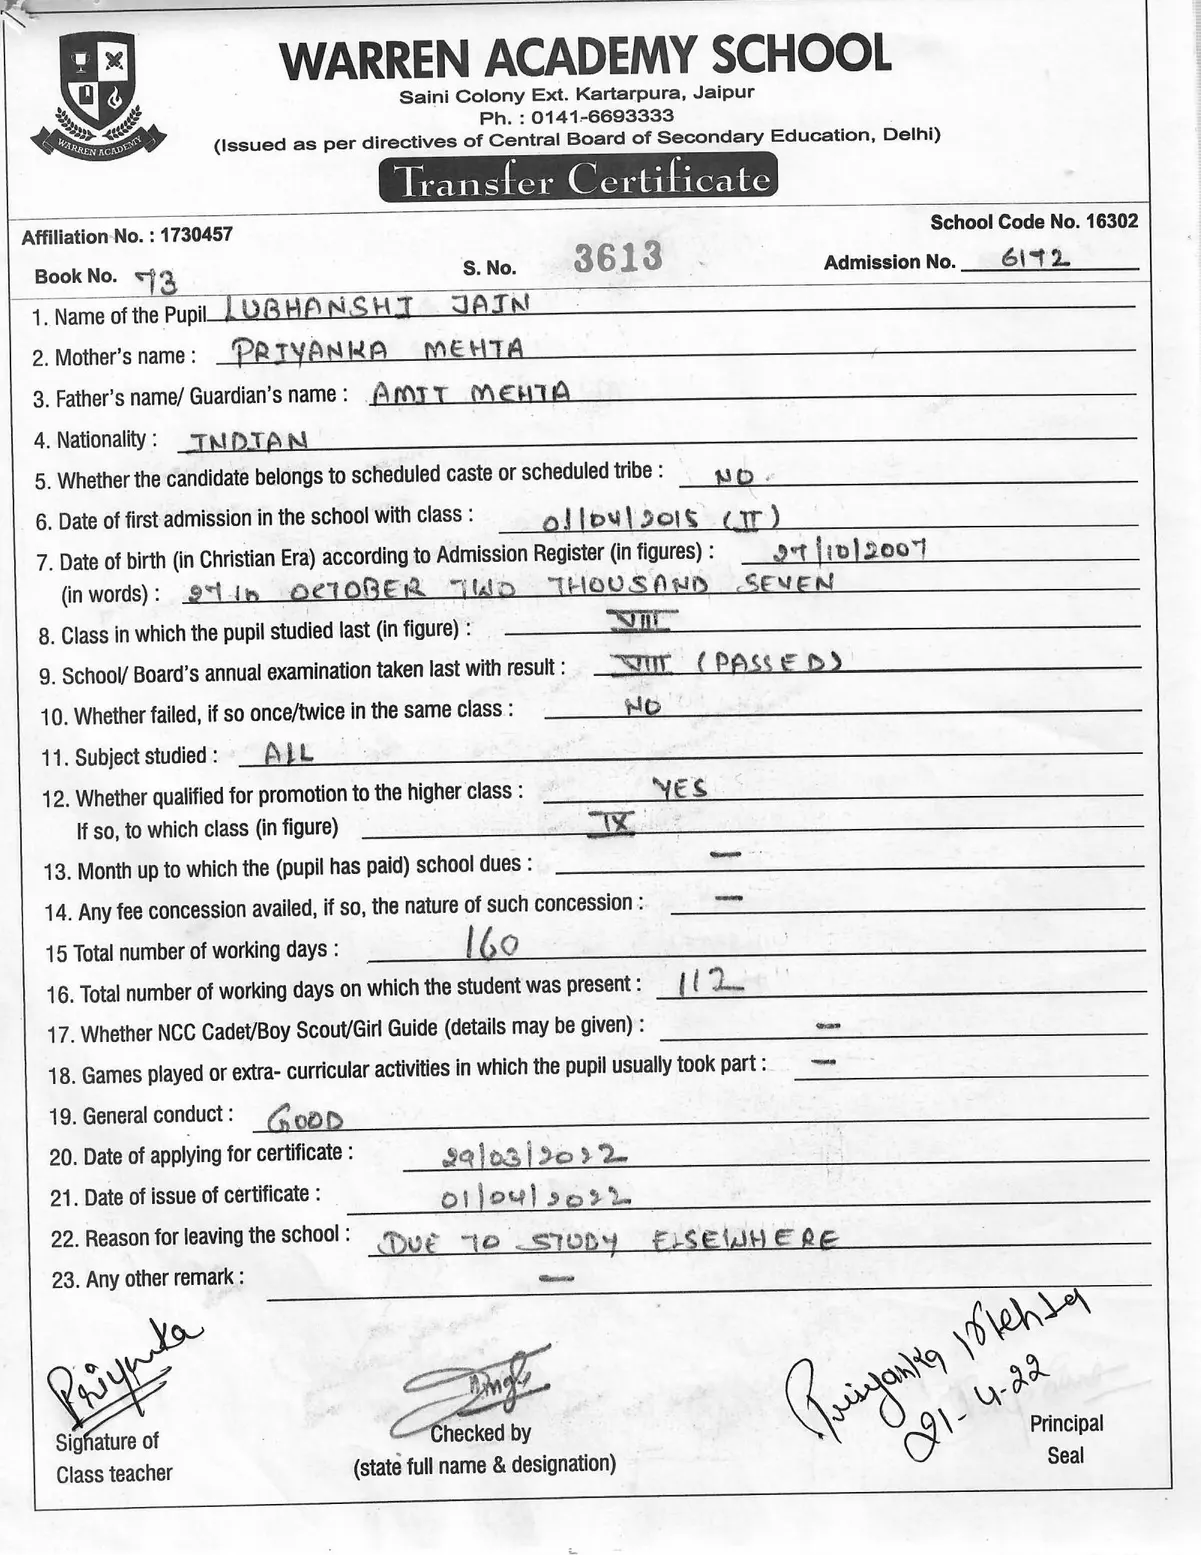 WARREN ACADEMY SCHOOL
Saini Colony Ext. Kartarpura, Jaipur
Ph. : 0141-6693333
(Issued as per directives of Central Board of Secondary Education, Delhi)
WARREN ACADEMY
Transfer Certificate
Affiliation No. : 1730457 School Code No. 16302
Book No. 73 S. No. 3613 Admission No. 6172
1. Name of the Pupil LUBHANSHI JAIN
2. Mother's name : PRIYANKA MEHTA
3. Father's name/ Guardian's name : AMIT MEHTA
4. Nationality : INDIAN
5. Whether the candidate belongs to scheduled caste or scheduled tribe : NO
6. Date of first admission in the school with class : 01/04/2015 (II)
7. Date of birth (in Christian Era) according to Admission Register (in figures) : 27/10/2007
(in words) : 27th OCTOBER TWO THOUSAND SEVEN
8. Class in which the pupil studied last (in figure) : VIII
9. School/ Board's annual examination taken last with result : VIII (PASSED)
10. Whether failed, if so once/twice in the same class : NO
11. Subject studied : ALL
12. Whether qualified for promotion to the higher class : YES
If so, to which class (in figure) IX
13. Month up to which the (pupil has paid) school dues : —
14. Any fee concession availed, if so, the nature of such concession : —
15 Total number of working days : 160
16. Total number of working days on which the student was present : 112
17. Whether NCC Cadet/Boy Scout/Girl Guide (details may be given) : —
18. Games played or extra- curricular activities in which the pupil usually took part : —
19. General conduct : GOOD
20. Date of applying for certificate : 29/03/2022
21. Date of issue of certificate : 01/04/2022
22. Reason for leaving the school : DUE TO STUDY ELSEWHERE
23. Any other remark : —
Priyanka
Priyanka Mehta
21-4-22
Signature of Checked by Principal
Class teacher (state full name & designation) Seal